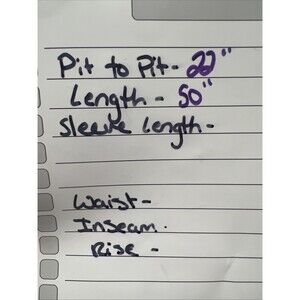 Pit to Pit- 22"
Length - 50"
Sleeve Length -
Waist-
Inseam.
Rise -